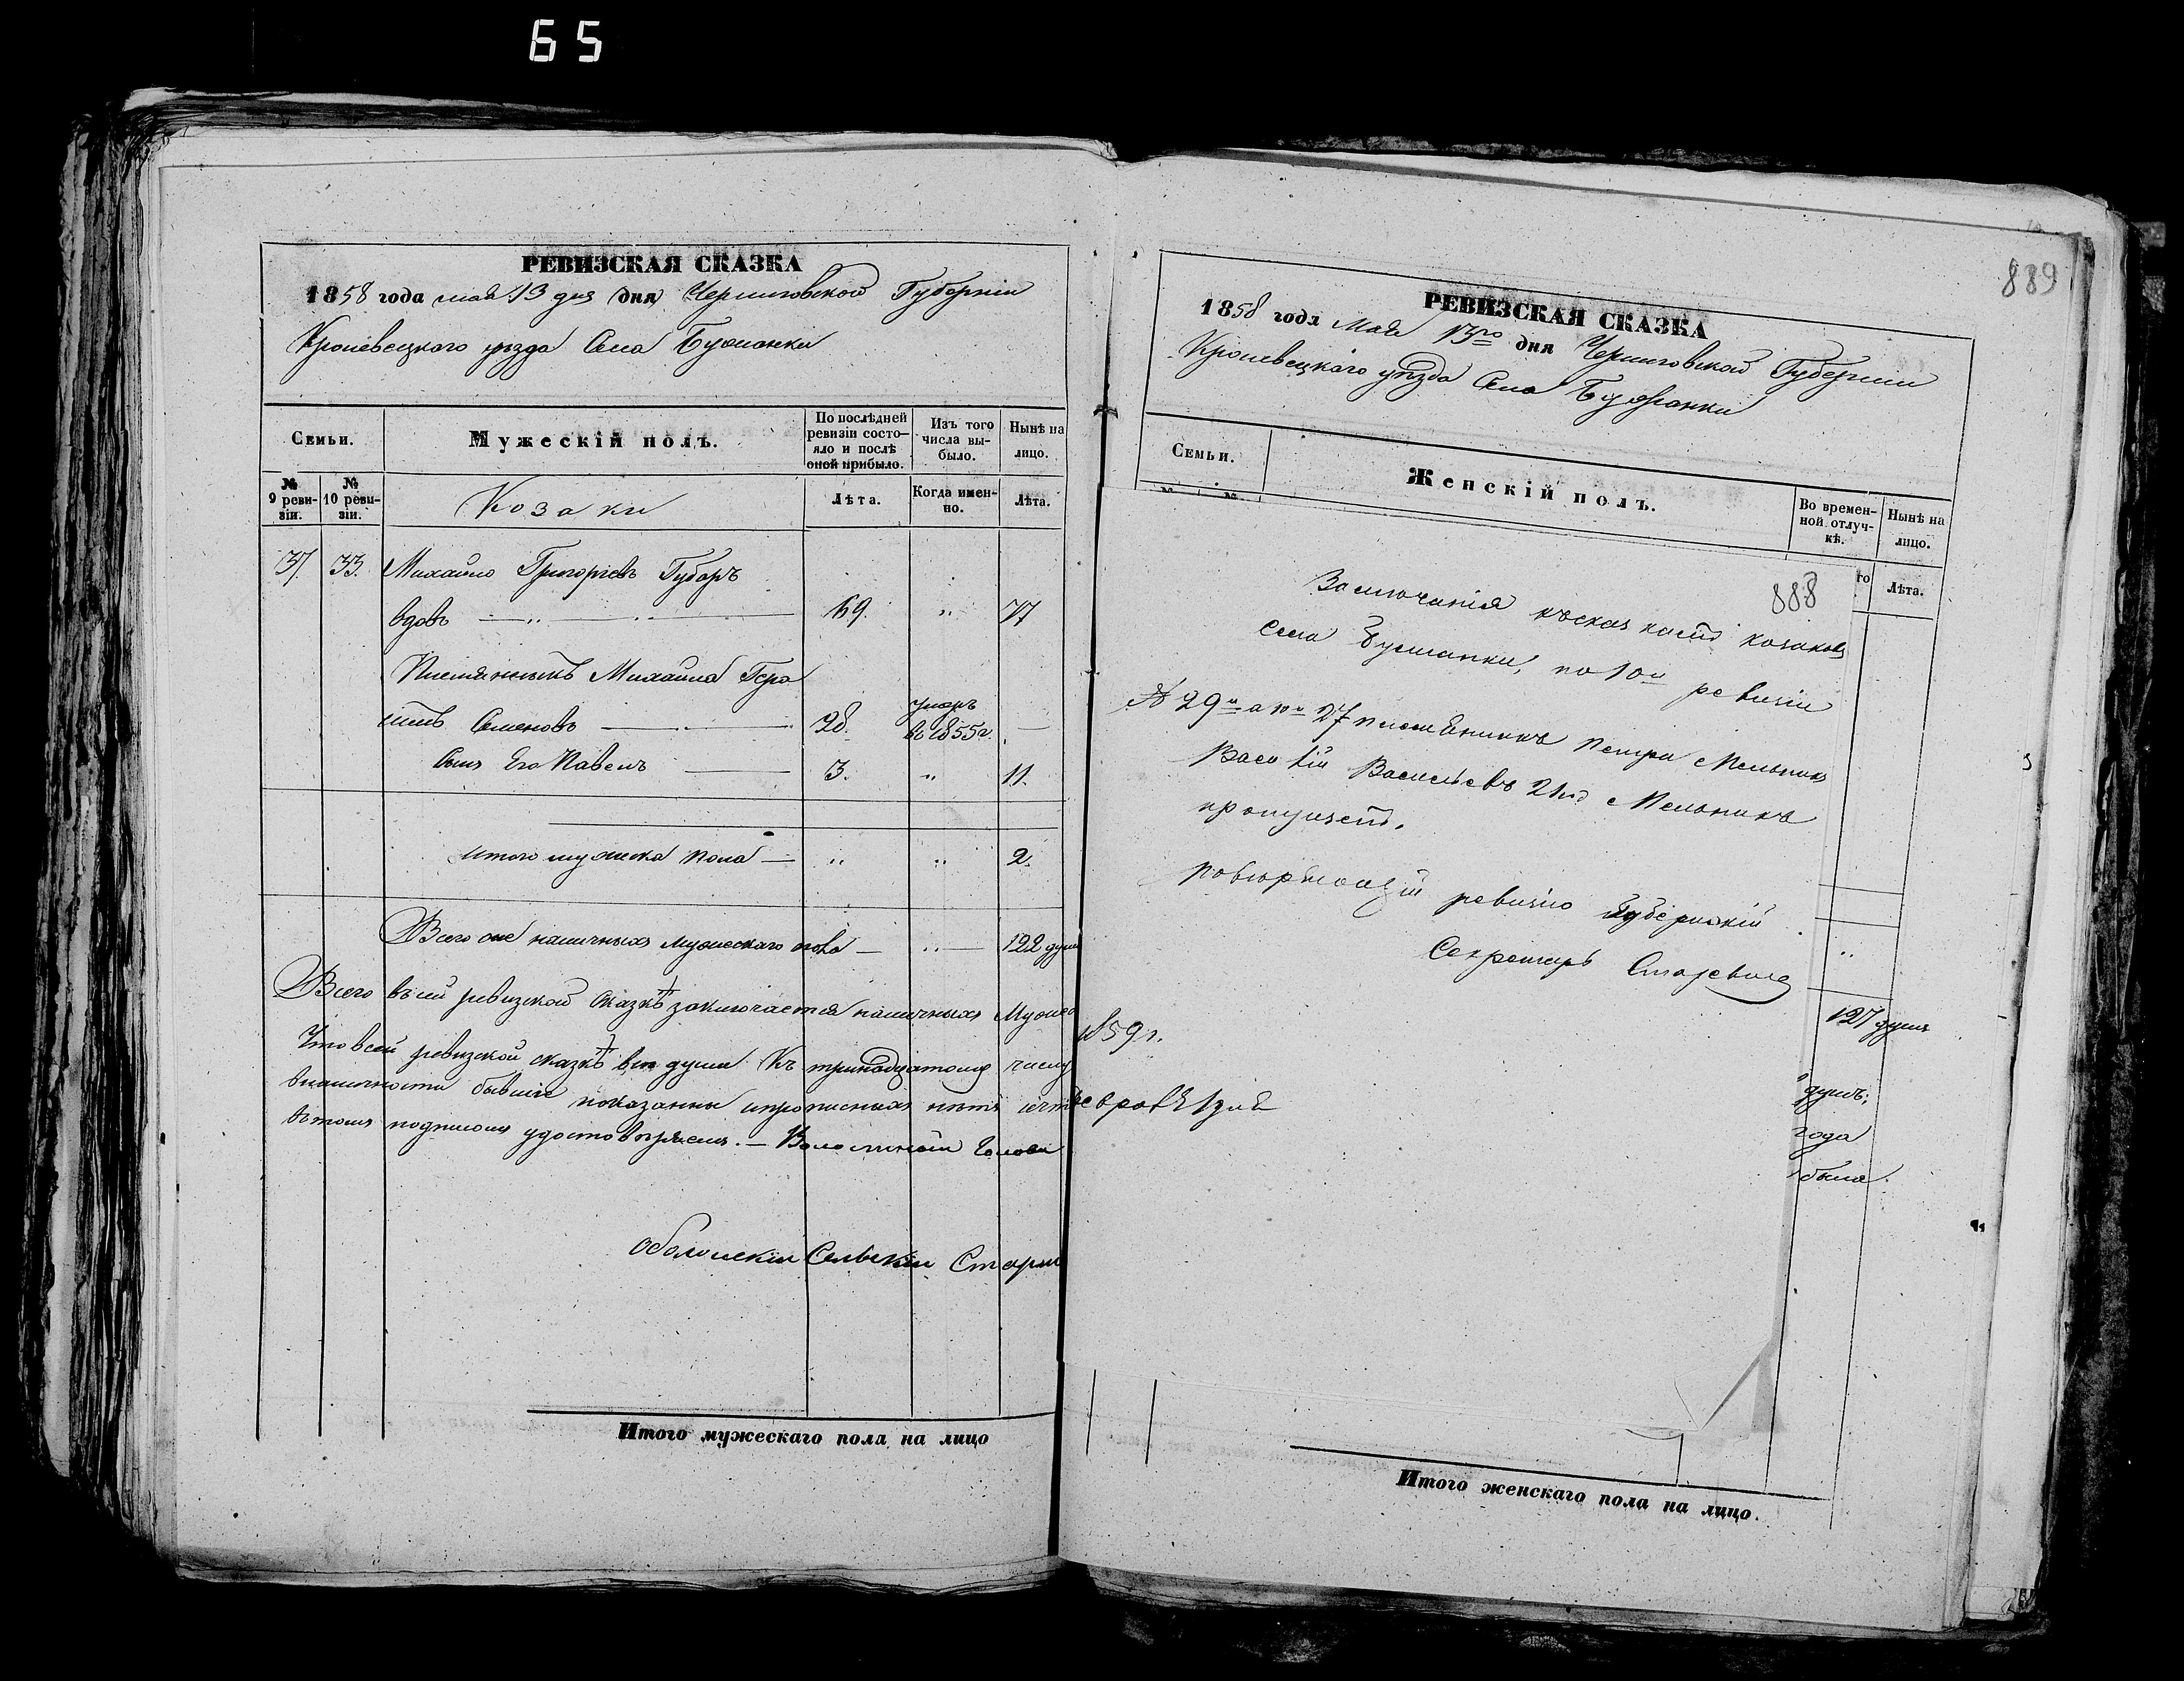 65
РЕВИЗСКАЯ СКАЗКА
1858 года мая 13 дня дня Черниговской Губерніи
Кролевецкого уѣзда Села Бужанки
Семьи.
Мужескій полъ.
По послѣдней ревизіи состояло и послѣ оной прибыло.
Изъ того числа выбыло.
Нынѣ на лицо.
№ 9 ревизіи.
№ 10 ревизіи.
Козаки
Лѣта.
Когда именно.
Лѣта.
37. 33. Михайло Григоріевъ Губарь
вдовъ 69. " 77
Племянникъ Михайла Гера
симъ Семеновъ 28. умеръ въ 1855 г. —
Сынъ Его Павелъ 3. " 11.
Итого мужеска пола — " " 2.
Всего оне наличныхъ мужескаго пола — " — 122 души
Всего въ сей ревизской сказкѣ заключается наличныхъ Мужес
Что въ сей ревизской сказкѣ всѣ души къ тринадцатому числу
въ наличности бывшіе показанны и прописныхъ нѣтъ
въ томъ подписомъ удостовѣряемъ. — Волостной Голова
Оболонскій Сельскій Старш
Итого мужескаго пола на лицо
889
РЕВИЗСКАЯ СКАЗКА
1858 года Мая 13го дня Черниговской Губерніи
Кролевецкаго уѣзда Села Бужанки
Семьи.
Женскій полъ.
Во временной отлучкѣ.
Нынѣ на лицо.
Лѣта.
888
Заключенія къ сказкамъ козаковъ
села Бужанки, по 10й ревизіи
№ 29й а 10й 27 племѣнникъ Петра Мельника
Василій Васильевъ 2й Мельникъ
пропущенъ.
Повѣряющій ревизію Губернскій
Секретарь
1859 г.
"
127 душъ
душъ;
года
была.
Итого женскаго пола на лицо.